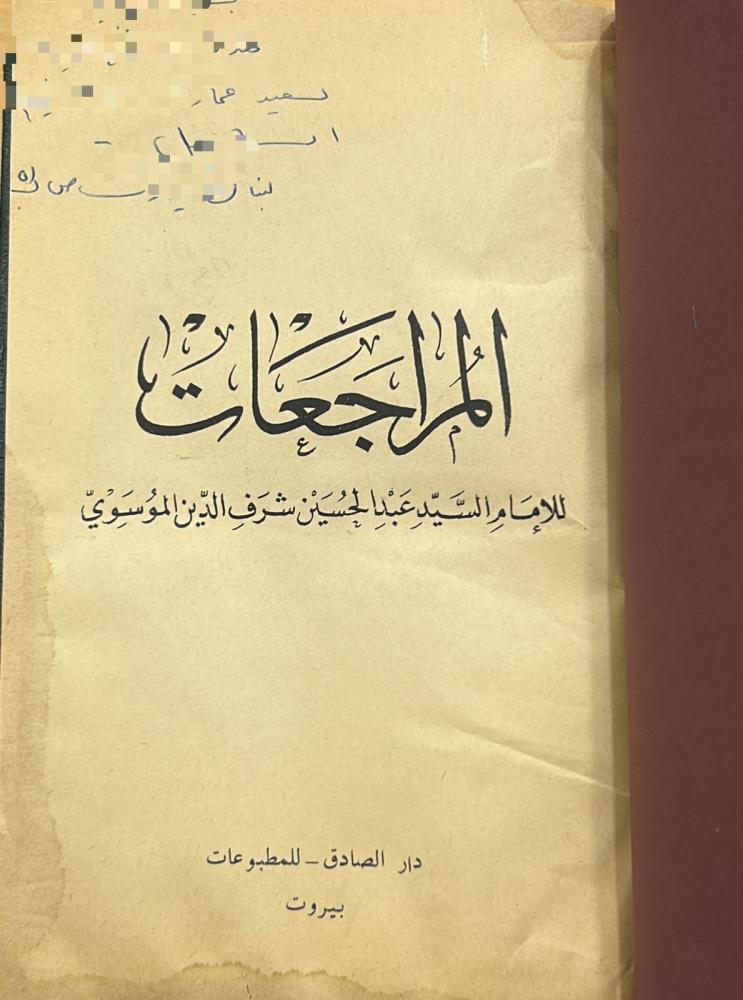 سعيد عمار
لبنان
المُراجَعَات
للإمَامِ السَّيِّدِ عَبْدِ الحُسَيْن شَرَفِ الدِّين الموُسَوْيّ
دار الصادق - للمطبوعات
بيروت